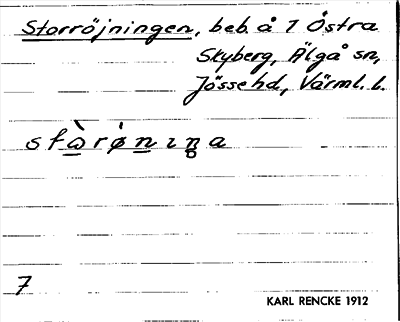 Storröjningen, beb. å 1 Östra
Skyberg, Älgå sn,
Jösse hd, Värml. l.
7
KARL RENCKE 1912